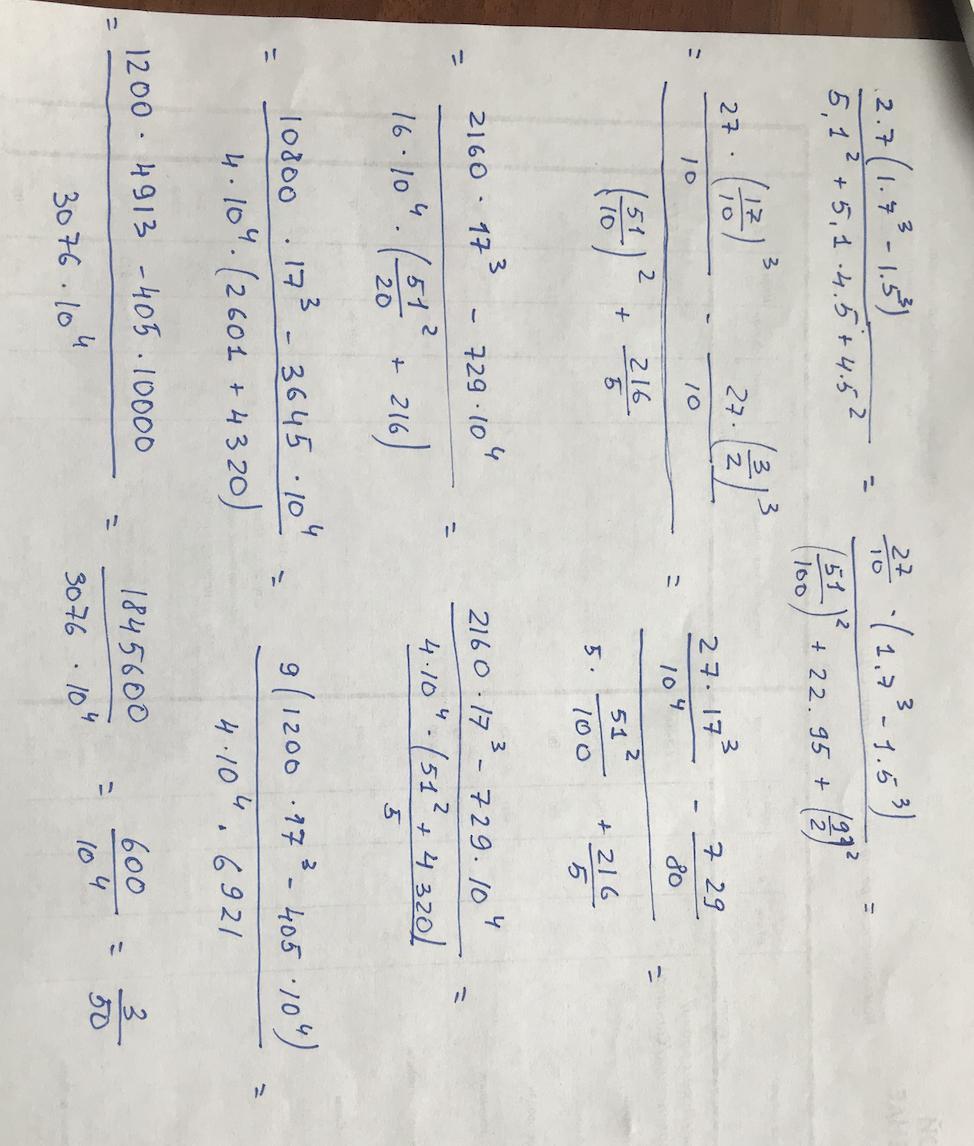 2.7(1.7³ - 1.5³) / (5,1² + 5,1 · 4.5 + 4.5²) = 27/10 · (1,7³ - 1.5³) / ((51/100)² + 22.95 + (9/2)²) =
= (27 · (17/10)³ / 10 - 27 · (3/2)³ / 10) / ((51/10)² + 216/5) = (27 · 17³ / 10⁴ - 729/80) / (5 · 51²/100 + 216/5) =
= (2160 · 17³ - 729 · 10⁴) / (16 · 10⁴ · (51²/20 + 216)) = (2160 · 17³ - 729 · 10⁴) / (4 · 10⁴ · (51² + 4320) / 5) =
= (10800 · 17³ - 3645 · 10⁴) / (4 · 10⁴ · (2601 + 4320)) = 9(1200 · 17³ - 405 · 10⁴) / (4 · 10⁴ · 6921) =
= (1200 · 4913 - 405 · 10000) / (3076 · 10⁴) = 1845600 / (3076 · 10⁴) = 600/10⁴ = 3/50